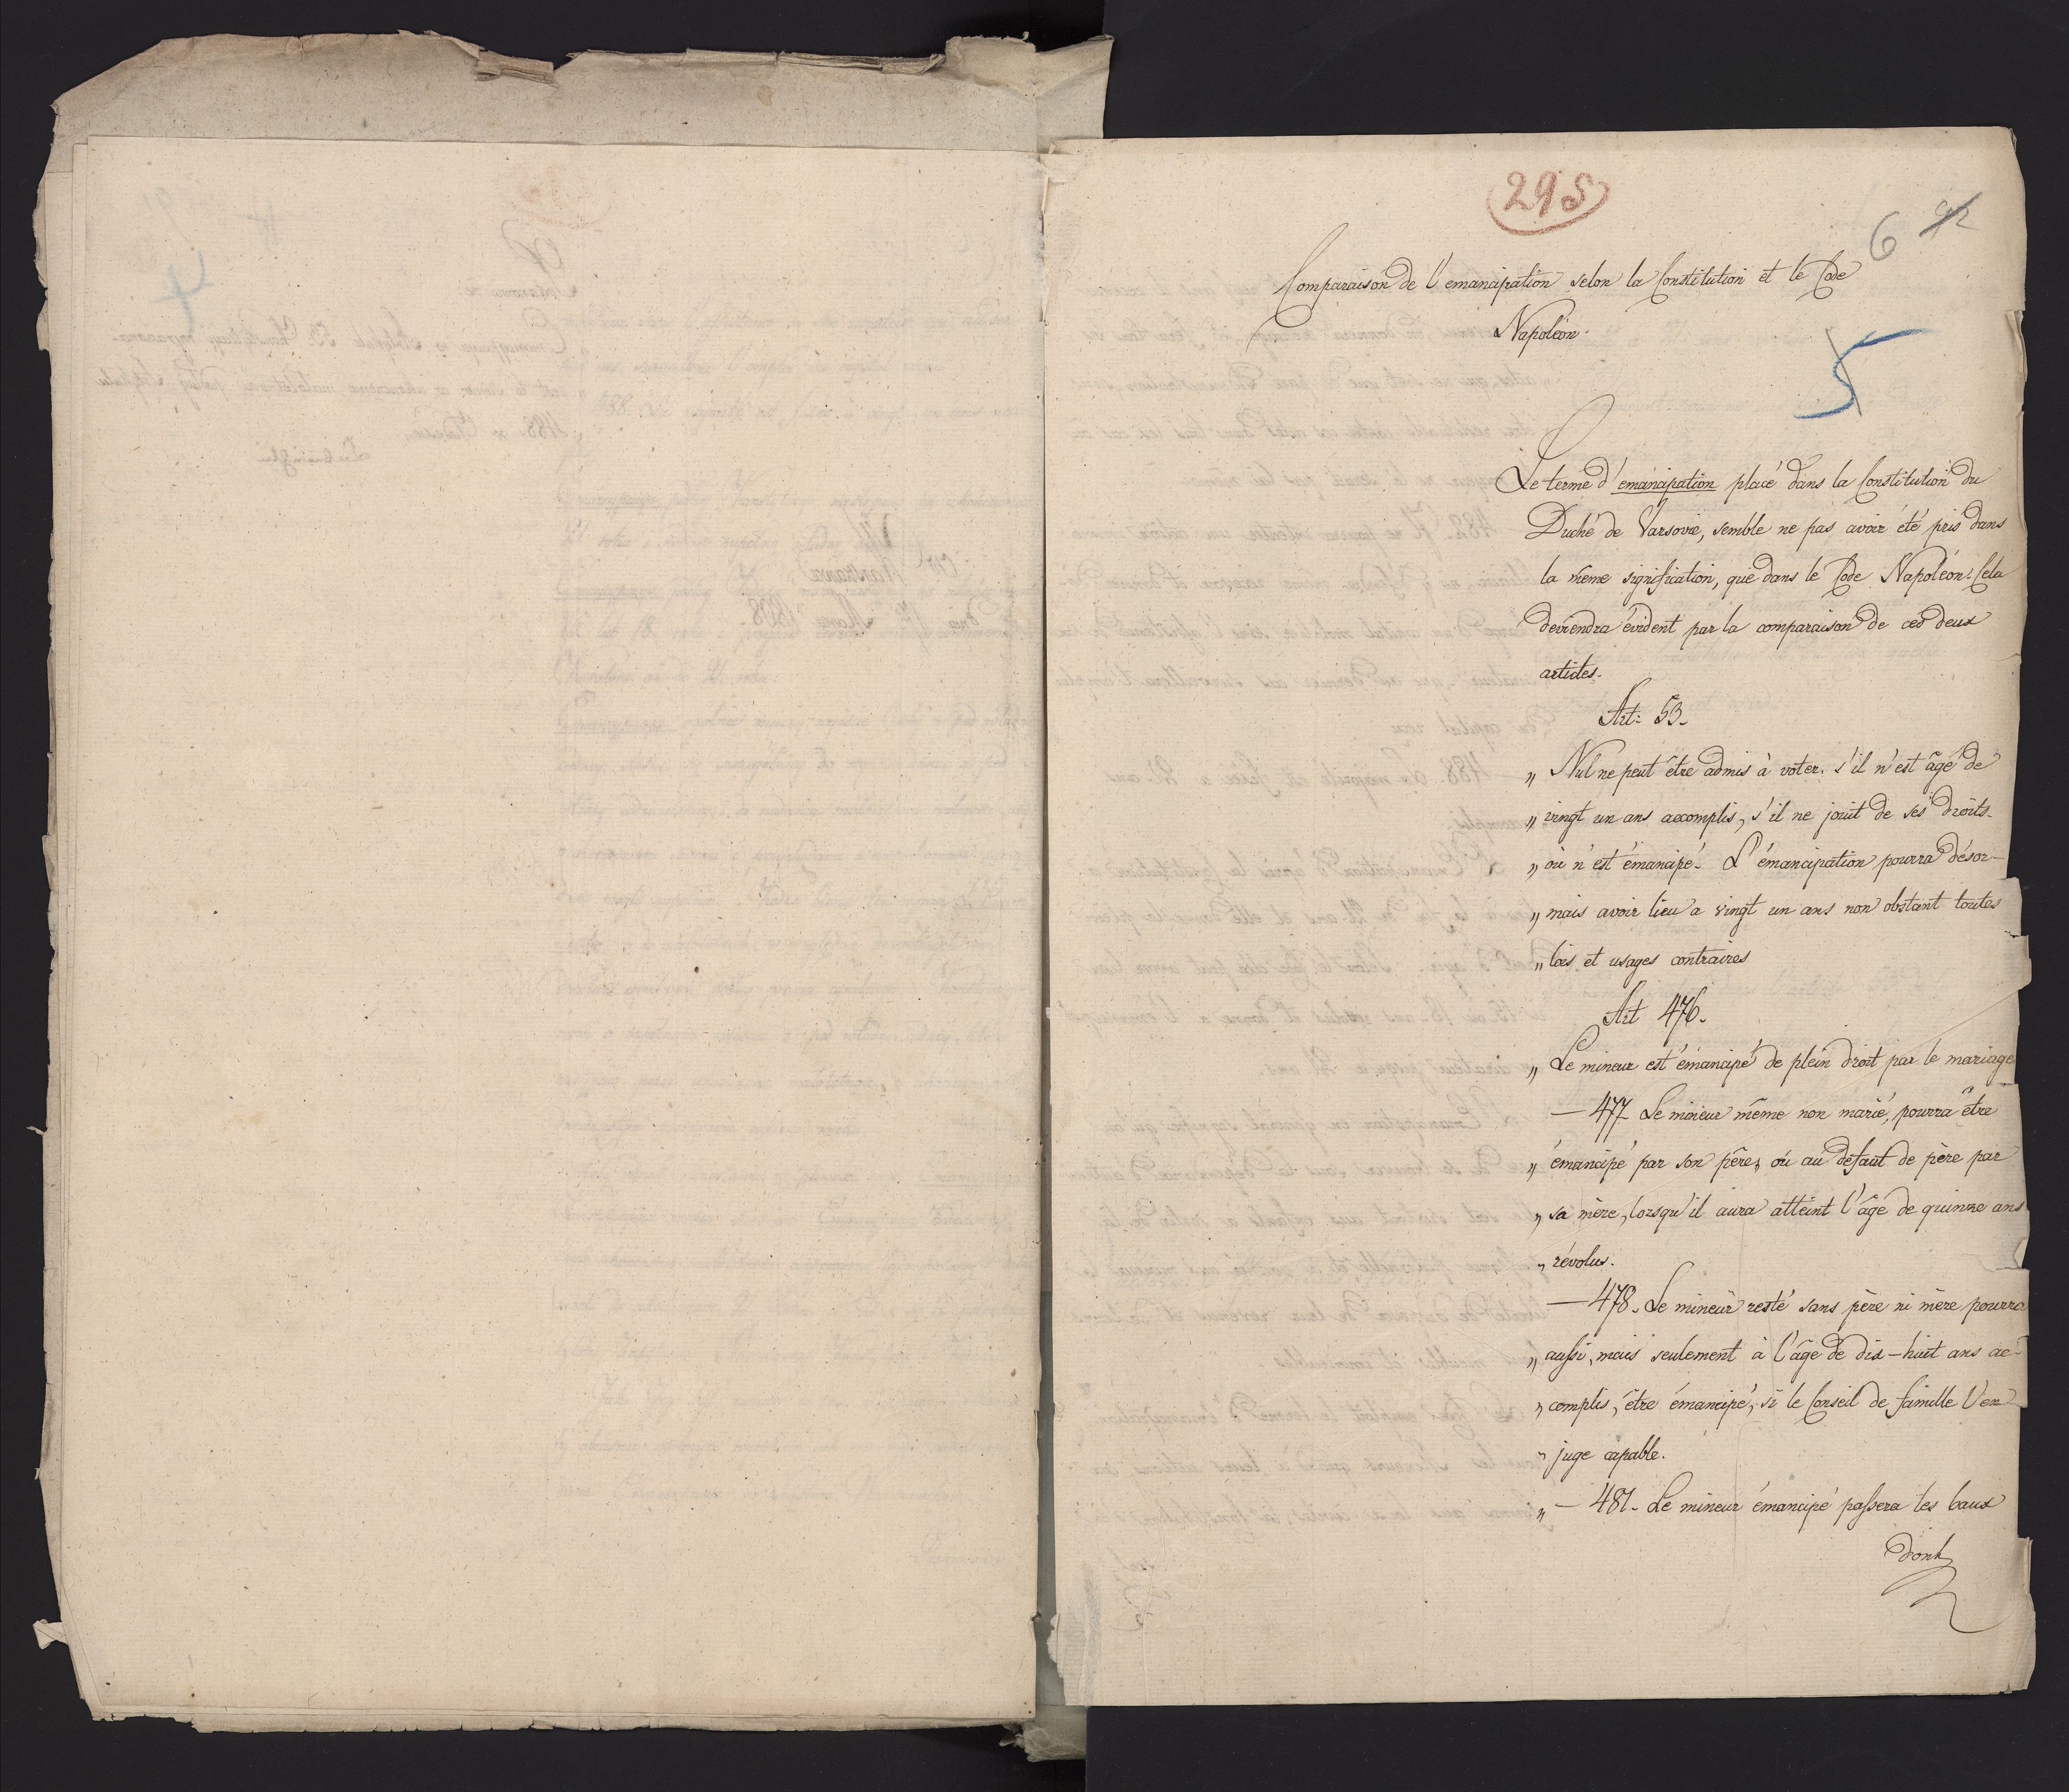 295
6 92
Comparaison de l'emancipation selon la Constitution et le Code
Napoléon.
5
Le terme d'émancipation placé dans la Constitution du
Duché de Varsovie, semble ne pas avoir été pris dans
la même signification, que dans le Code Napoléon. Cela
deviendra évident par la comparaison de ces deux
articles.
Art: 53.
„ Nul ne peut être admis à voter. s'il n'est âgé de
„ vingt un ans accomplis, s'il ne jouit de ses droits.
„ où n'est émancipé. L'émancipation pourra désor-
„ mais avoir lieu a vingt un ans non obstant toutes
„ lois et usages contraires
Art 476.
„ Le mineur est émancipé de plein droit par le mariage
— 477 Le mineur même non marié, pourra être
„ émancipé par son père, où au défaut de père par
„ sa mère, lorsqu'il aura atteint l'âge de quinze ans
„ révolus.
— 478. Le mineur resté sans père ni mère pourra
„ aussi, mais seulement à l'âge de dix-huit ans ac-
„ complis, être émancipé, si le Conseil de famille l'en
„ juge capable.
„ — 481. Le mineur émancipé passera les baux
dont